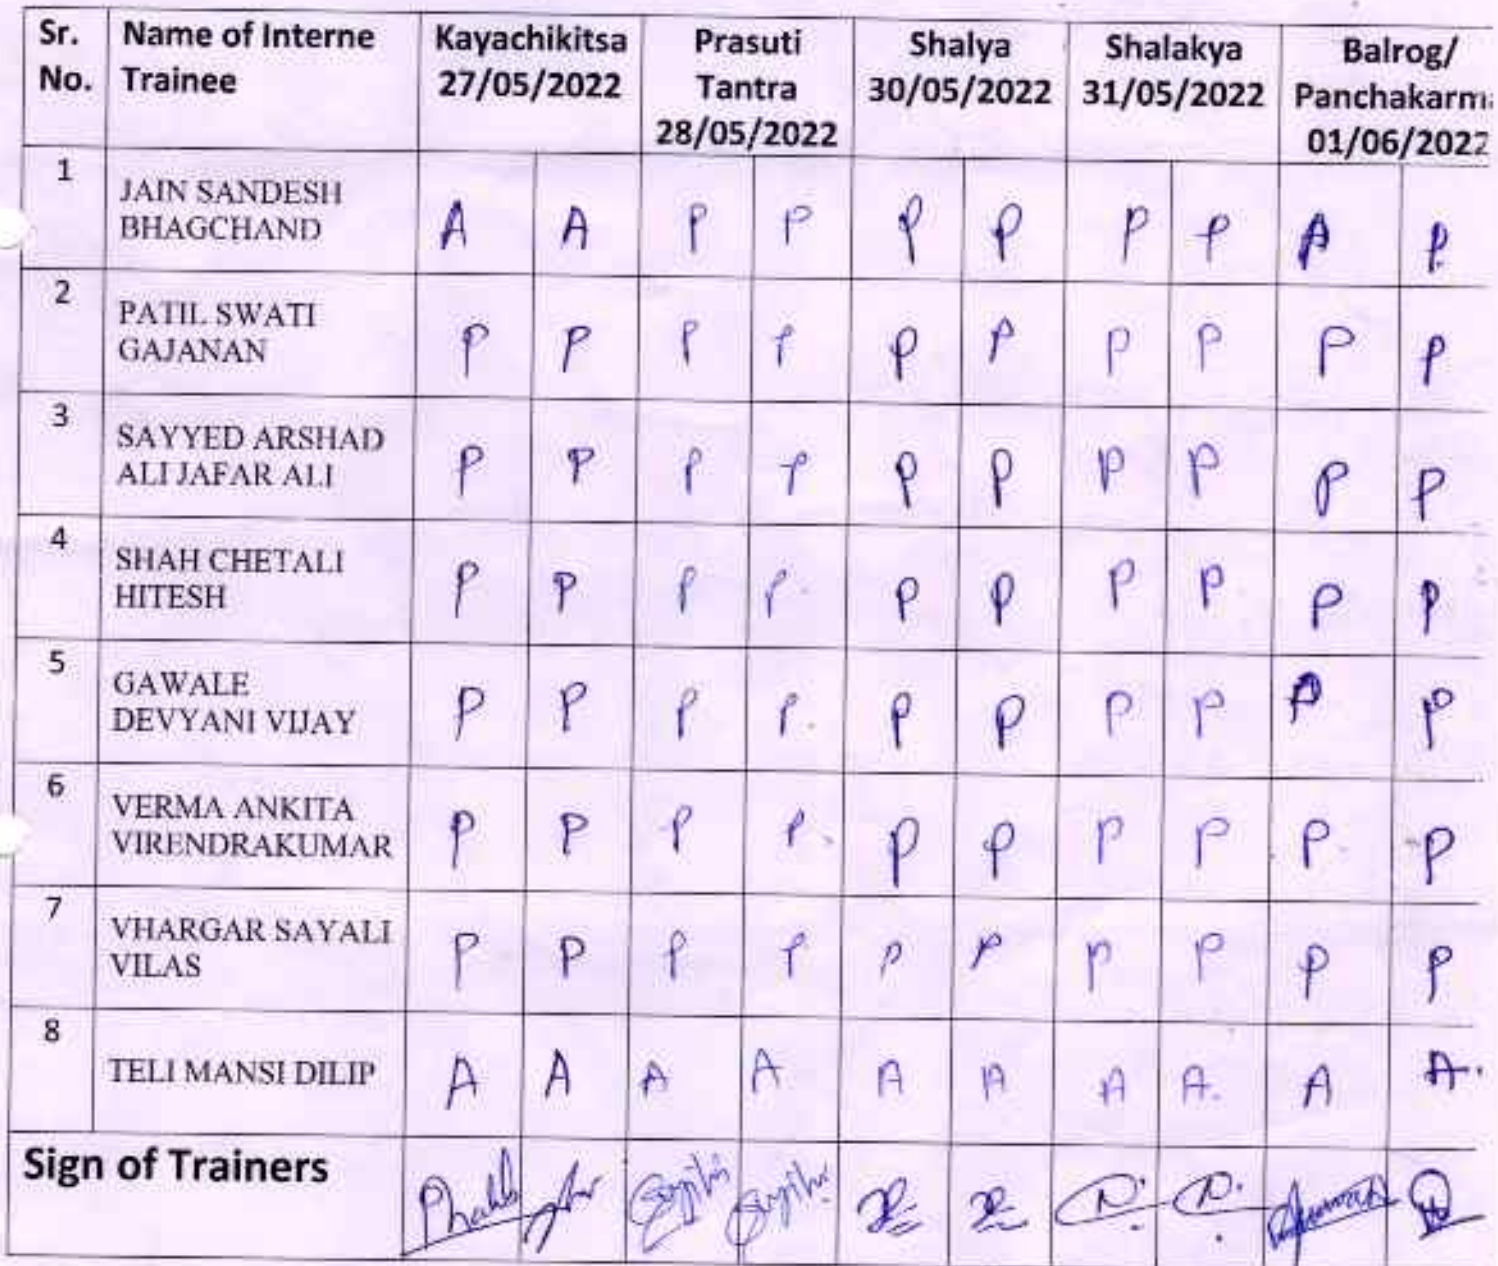 Sr. No. Name of Interne Trainee Kayachikitsa 27/05/2022 Prasuti Tantra 28/05/2022 Shalya 30/05/2022 Shalakya 31/05/2022 Balrog/ Panchakarm 01/06/2022
1 JAIN SANDESH BHAGCHAND A A P P P P P P P
2 PATIL SWATI GAJANAN P P P P P P P P P P
3 SAYYED ARSHAD ALI JAFAR ALI P P P P P P P P P P
4 SHAH CHETALI HITESH P P P P P P P P P P
5 GAWALE DEVYANI VIJAY P P P P P P P P P
6 VERMA ANKITA VIRENDRAKUMAR P P P P P P P P P P
7 VHARGAR SAYALI VILAS P P P P P P P P P P
8 TELI MANSI DILIP A A A A A A A A. A A.
Sign of Trainers